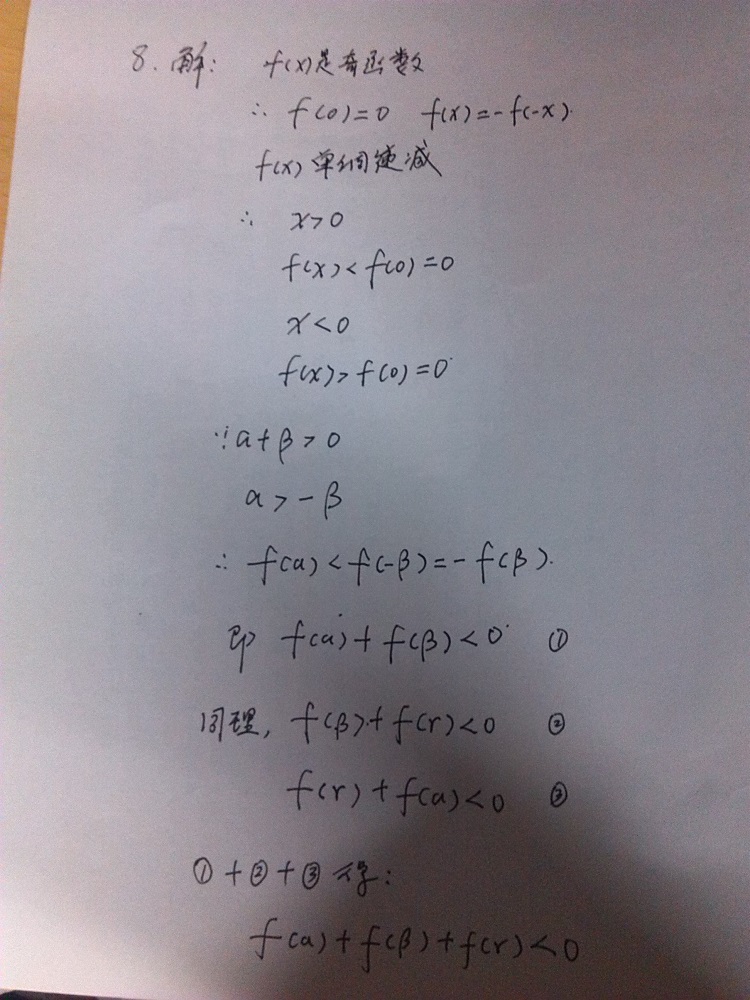 8. 解: f(x)是奇函数
∴ f(0)=0 f(x)=-f(-x).
f(x)单调递减
∴ x>0
f(x)<f(0)=0
x<0
f(x)>f(0)=0
∵α+β>0
α>-β
∴ f(α)<f(-β)=-f(β).
即 f(α)+f(β)<0 ①
同理, f(β)+f(r)<0 ②
f(r)+f(α)<0 ③
①+②+③得:
f(α)+f(β)+f(r)<0